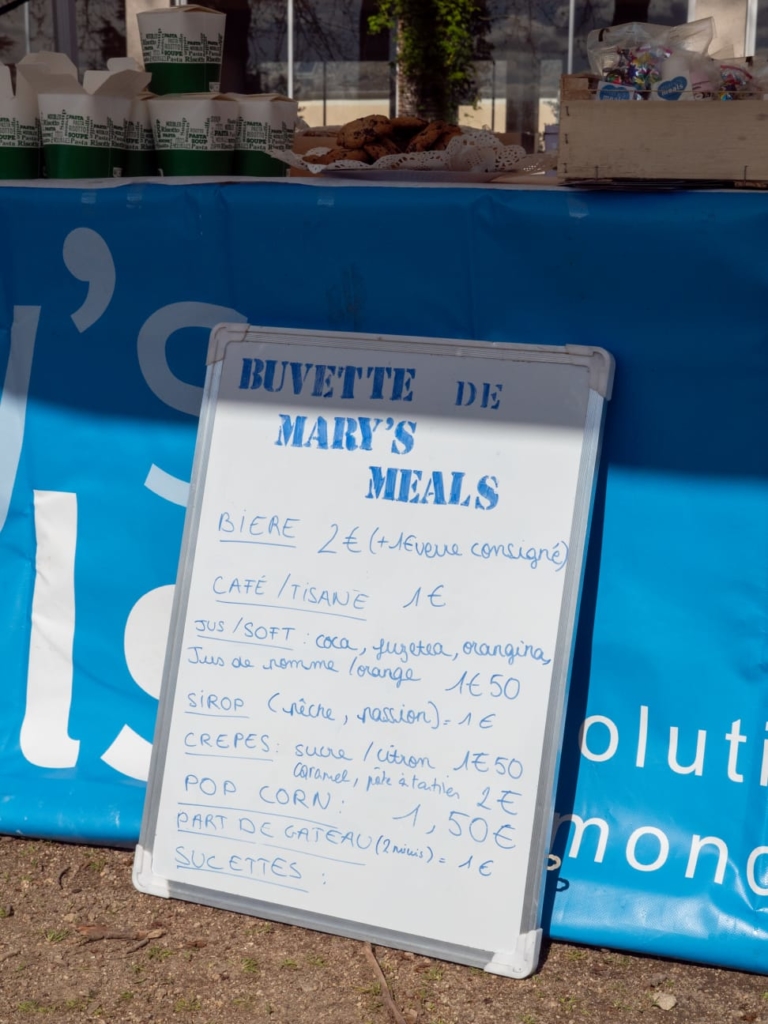 PASTA
SOUPE
's
ls
BUVETTE DE
MARY'S
MEALS
BIERE 2€ (+1€ verre consigné)
CAFÉ / TISANE 1€
JUS / SOFT : coca, fuzetea, orangina,
Jus de pomme / orange 1€50
SIROP (pêche, passion) = 1€
CREPES : sucre / citron 1€50
caramel, pâte à tartiner 2€
POP CORN : 1,50€
PART DE GATEAU (2 minis) = 1€
SUCETTES :
oluti
mond